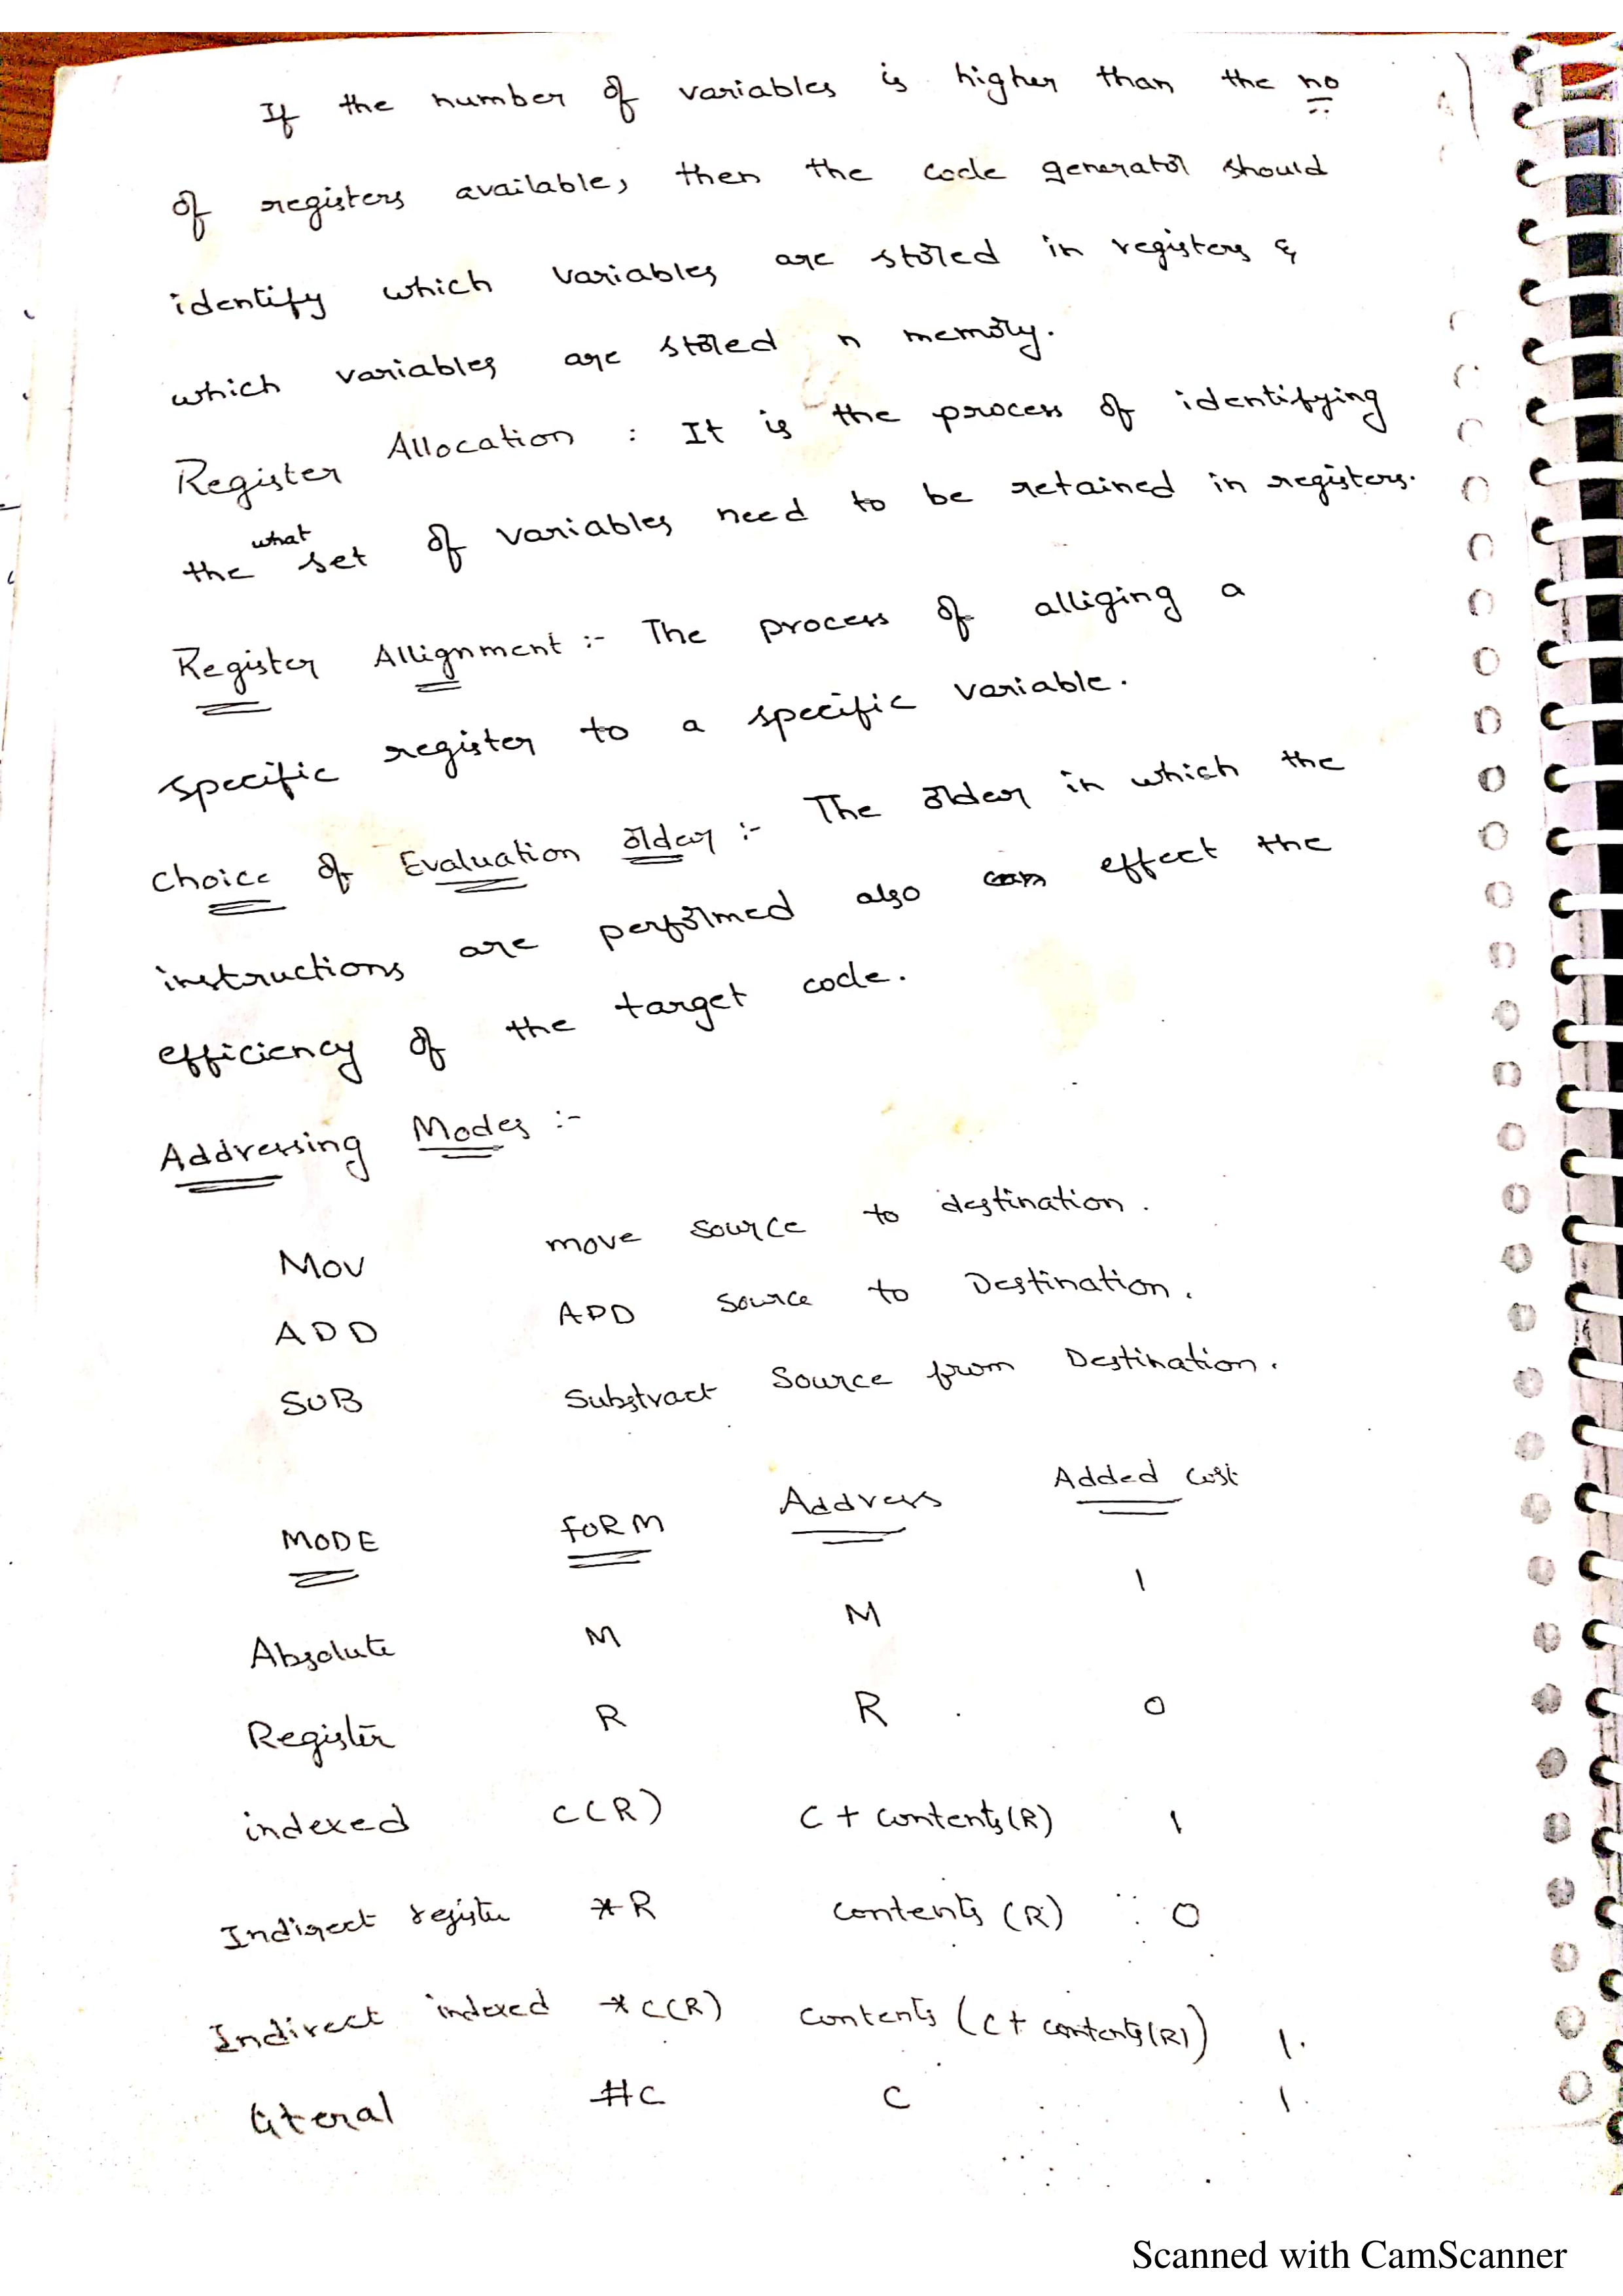 If the number of variables is higher than the no
of registers available, then the code generator should
identify which variables are stored in registers &
which variables are stored n memory.
Register Allocation : It is the process of identifying
the what set of variables need to be retained in registers.
Register Allignment :- The process of alliging a
specific register to a specific variable.
Choice of Evaluation order :- The order in which the
instructions are performed also can effect the
efficiency of the target code.
Addressing Modes :-
MOV move source to destination.
ADD ADD source to Destination.
SUB Substract Source from Destination.
MODE FORM Address Added cost
Absolute M M 1
Register R R 0
indexed C(R) C + contents(R) 1
Indirect register *R contents (R) 0
Indirect indexed *C(R) contents (C + contents(R)) 1.
literal #C C 1.
Scanned with CamScanner